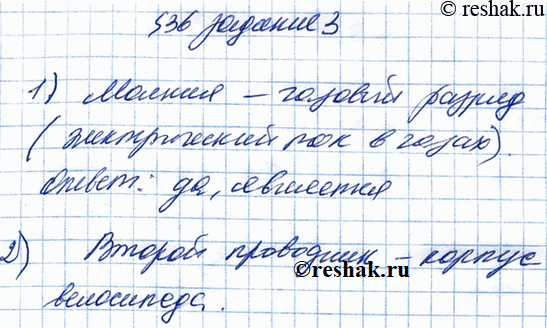 © reshak.ru
§36 задание 3
1) Молния – газовый разряд
(электрический ток в газах).
Ответ: да, является
2) Второй проводник – корпус
велосипеда.
© reshak.ru